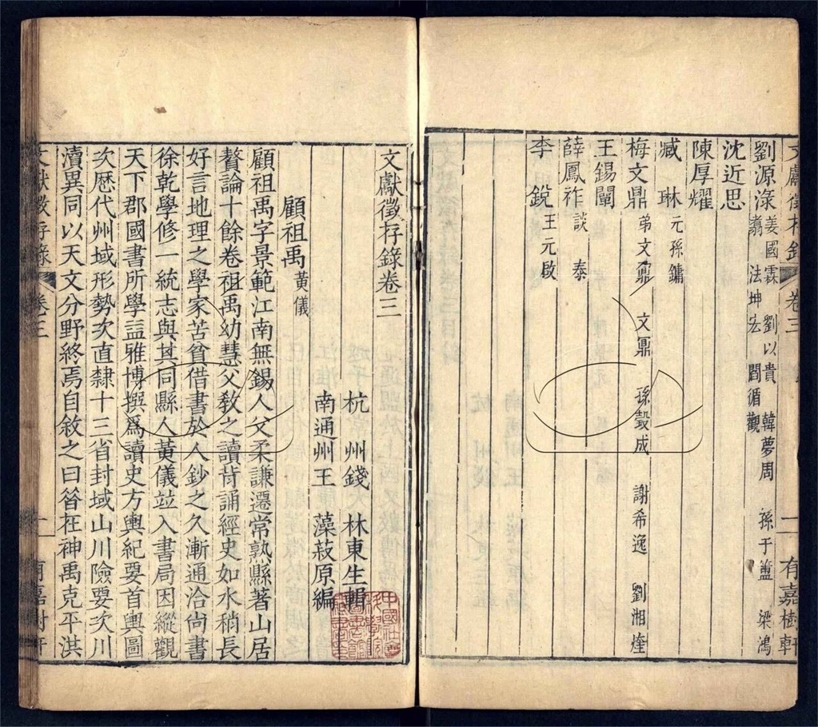 文獻徵存錄 卷三 一 有嘉樹軒
劉源淥 姜國霖 劉以貴 韓夢周 孫于盤 梁鴻
翥 法坤宏 閻循觀
沈近思
陳厚耀
臧琳 元孫鏞
梅文鼎 弟文鼐 文鼏 孫瑴成 謝希逸 劉湘煃
王錫闡
薛鳳祚 談泰
李銳 王元啟
文獻徵存錄卷三
杭州錢林東生輯
南通州王藻菽原編
顧祖禹 黃儀
顧祖禹字景範江南無錫人父柔謙遷常熟縣著山居
贅論十餘卷祖禹幼慧父教之讀背誦經史如水稍長
好言地理之學家苦貧借書於人鈔之久漸通洽尚書
徐乾學修一統志與其同縣人黃儀竝入書局因縱觀
天下郡國書所學益雅博撰爲讀史方輿紀要首輿圖
次歷代州域形勢次直隸十三省封域山川險要次川
瀆異同以天文分野終焉自敘之曰昝在神禹克平洪
文獻徵存錄 卷三 一 有嘉樹軒